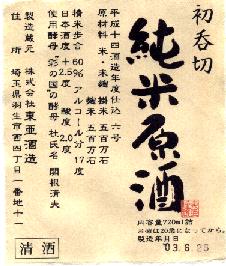 初呑切
純米原酒
平成十四酒造年度仕込 六号
原材料 米・米麹 麹米 五百万石
掛米 五百万石
精米歩合 60% アルコール分 17度
日本酒度 +2.5 酸度 2.0度
使用酵母 彩の国の酵母 杜氏名 関根清夫
製造元 株式会社 東亜酒造
住所 埼玉県羽生市西四丁目一番地十一
清酒
内容量720ml詰
お酒は20歳になってから。
製造年月日
03.6.25